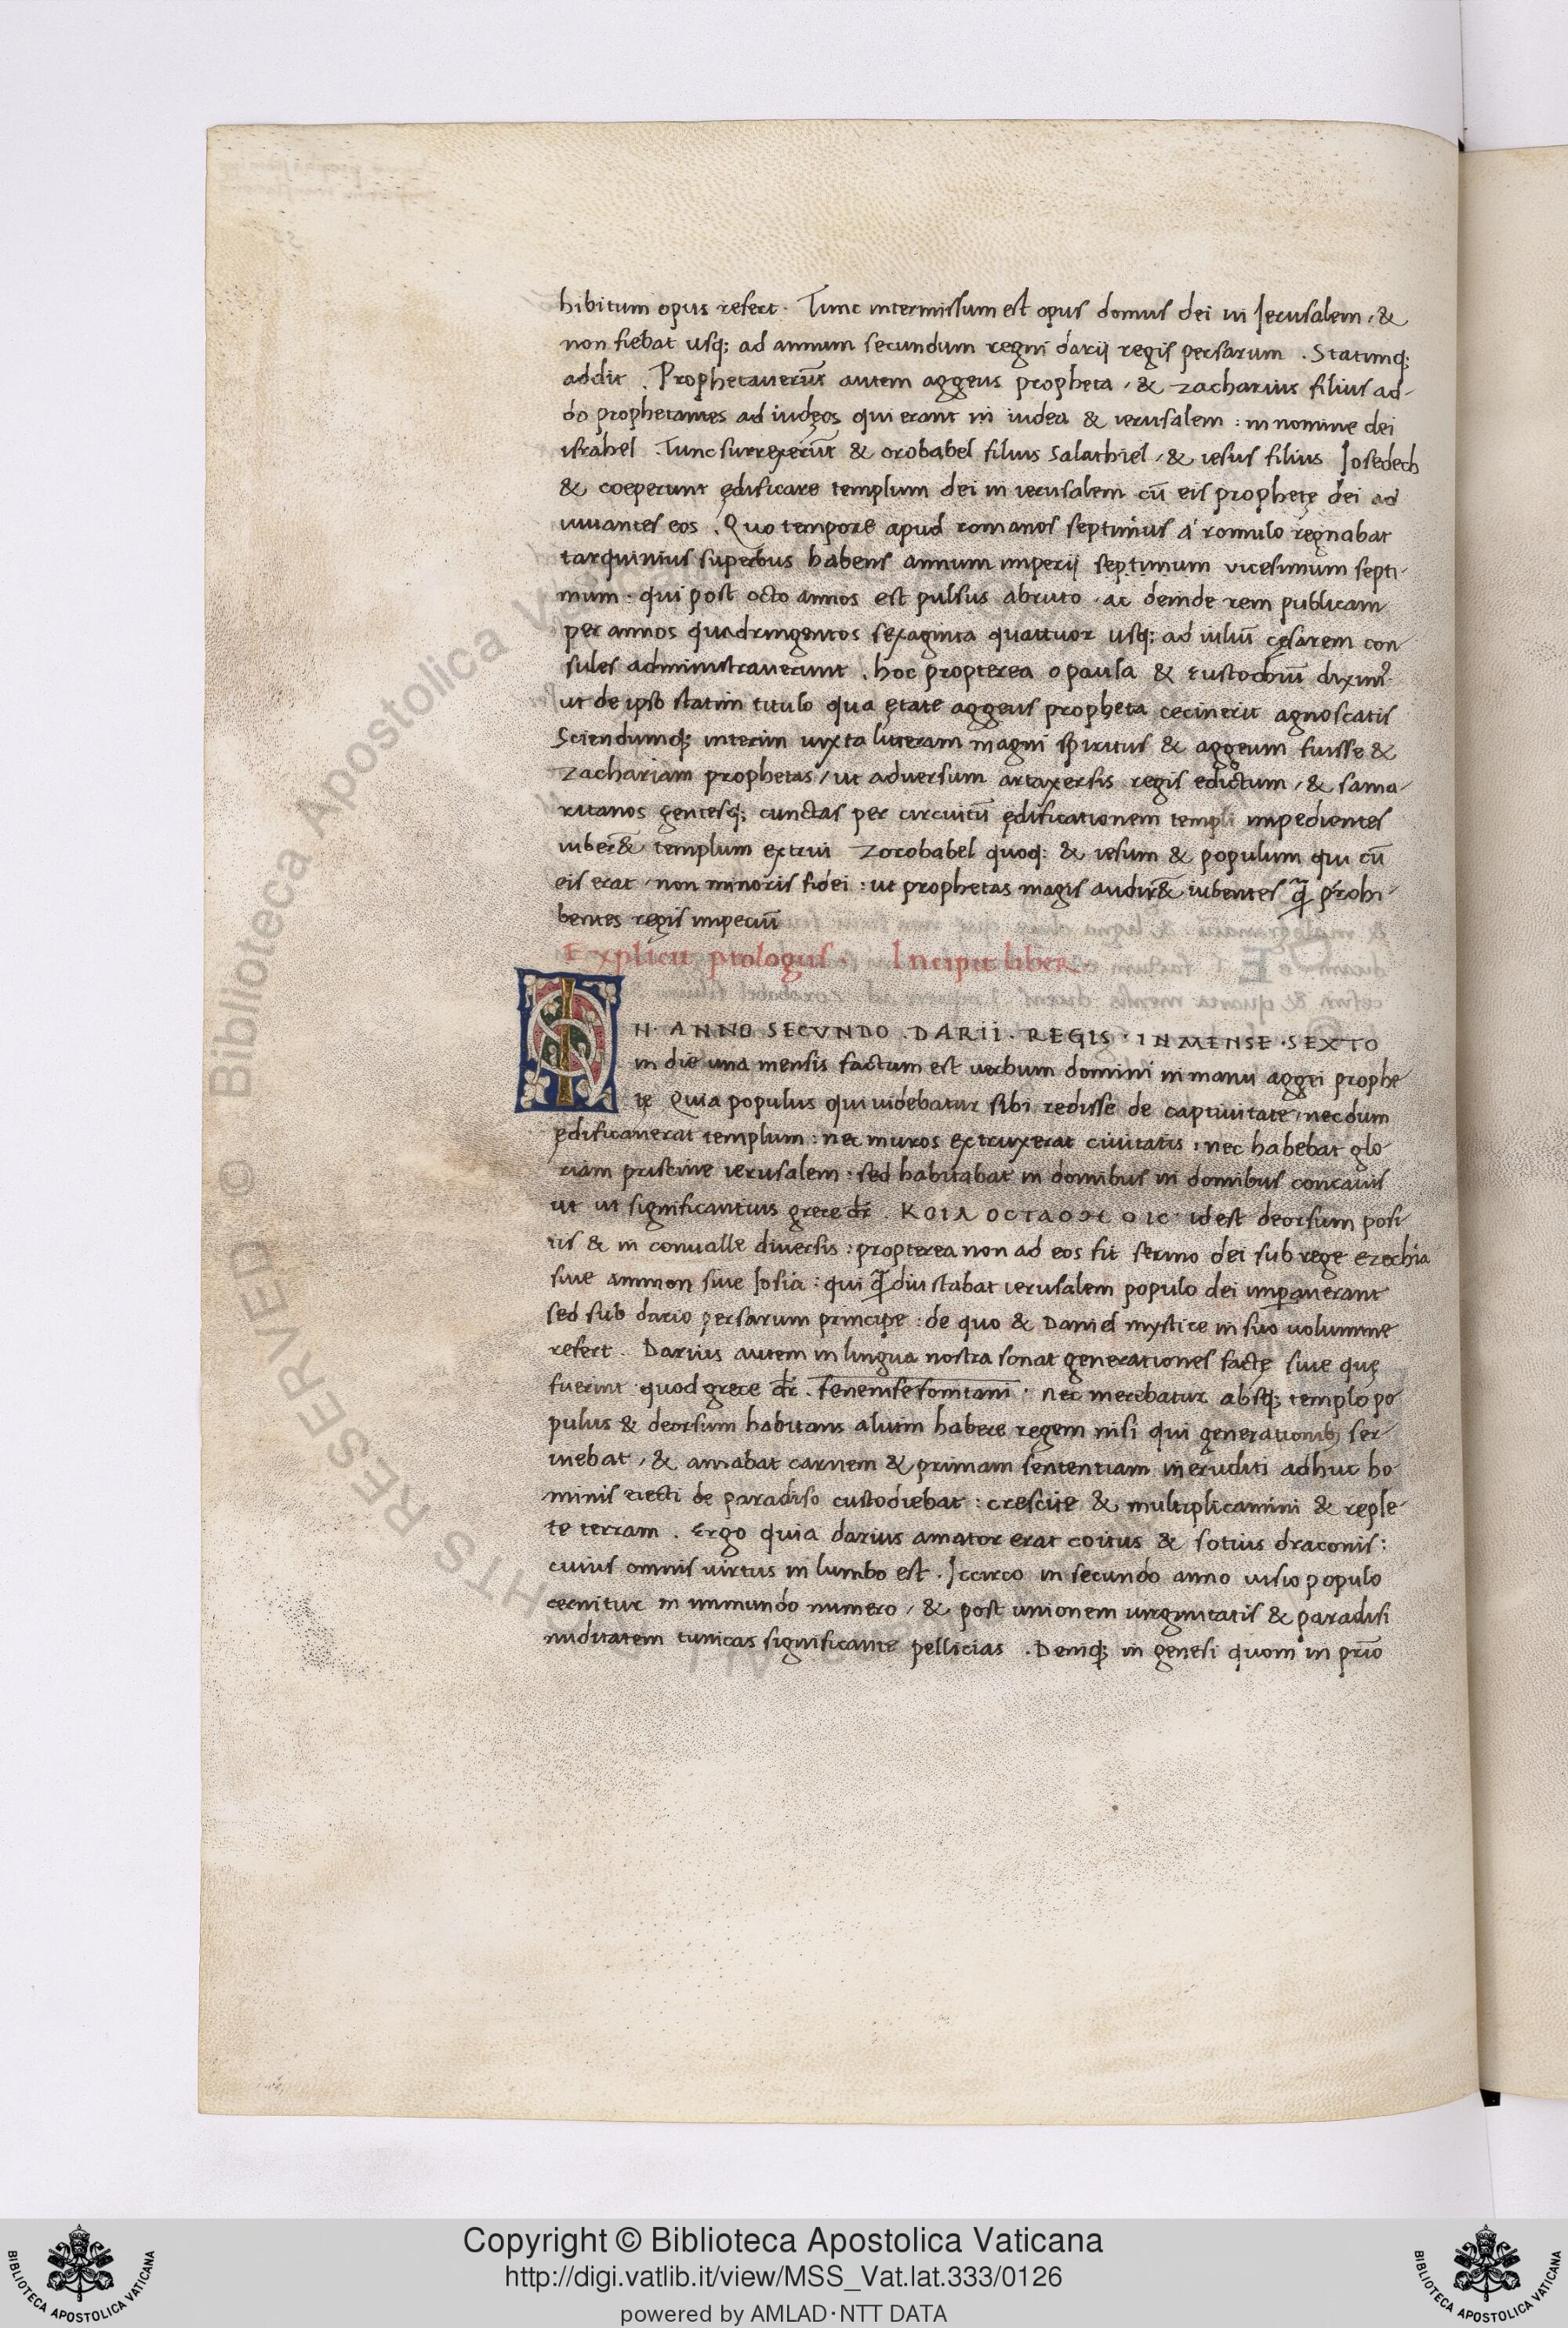 hibitum opus refert. Tunc intermissum est opus domus dei in Ierusalem, &
non fiebat usq; ad annum secundum regni darij regis persarum. Statimq;
addit. Prophetauerūt autem aggeus propheta, & zacharias filius ad-
do prophetantes ad iudęos qui erant in iudea & ierusalem: in nomine dei
israhel. Tunc surrexerūt & orobabel filius Salathiel, & iesus filius Iosedech
& coeperunt ędificare templum dei in ierusalem cū eis prophetę dei ad
iuuantes eos. Quo tempore apud romanos septimus á romulo regnabat
tarquinius superbus habens annum imperij septimum vicesimum septi-
mum. qui post octo annos est pulsus abruto. ac deinde rem publicam
per annos quadringentos sexaginta quattuor usq; ad iuliū cęsarem con
sules administrauerunt. hoc propterea o paula & eustochiū dixim⁹
ut de ipso statim titulo qua ętate aggeus propheta cecinerit agnoscatis
Sciendumq; interim iuxta litteram magni spiritus & aggeum fuisse &
zachariam prophetas, ut aduersum artaxersis regis edictum, & sama-
ritanos gentesq; cunctas per circuitū ędificationem templi impedientes
iuber& templum extrui zorobabel quoq: & iesum & populum qui cū
eis erat non minoris fidei: ut prophetas magis audir& iubentes q̄ prohi-
bentes regis imperiū
Explicit prologus. Incipit liber
IN. ANNO SECVNDO. DARII. REGIS. IN MENSE. SEXTO
in die una mensis factum est uerbum domini in manu aggei prophe
tę Quia populus qui uidebatur sibi redisse de captiuitate, necdum
ędificauerat templum: nec muros extruxerat ciuitatis: nec habebat glo
riam pristine ierusalem. sed habitabat in domibus in domibus concauis
ut ut significantius grece dr̄. ΚΟΙΛ ΟCΤΑΟΜ ΟΙC. idest deorsum posi
tis & in conualle diuersis: propterea non ad eos fit sermo dei sub rege ezechia
siue ammon siue Iosia: qui q̄diu stabat ierusalem populo dei imperauerant
sed sub dario persarum principe: de quo & Daniel mystice in suo uolumine
refert. Darius autem in lingua nostra sonat generationes factę siue quę
fuerint quod grece dr̄. fenemsefomtani. nec merebatur absq; templo po
pulus & deorsum habitans alium habere regem nisi qui generationib; ser
uiebat, & amabat carnem & primam sententiam ineruditi adhuc ho
minis eiecti de paradiso custodiebat: crescite & multiplicamini & reple-
te terram. Ergo quia darius amator erat coitus & sotius draconis:
cuius omnis uirtus in lumbo est. Iccirco in secundo anno uisio populo
cernitur in immundo numero, & post unionem uirginitatis & paradisi
nuditatem tunicas significante pellicias. Demq; in genesi quom in prīo
BIBLIOTECA APOSTOLICA VATICANA
Copyright © Biblioteca Apostolica Vaticana
http://digi.vatlib.it/view/MSS_Vat.lat.333/0126
powered by AMLAD·NTT DATA
BIBLIOTECA APOSTOLICA VATICANA